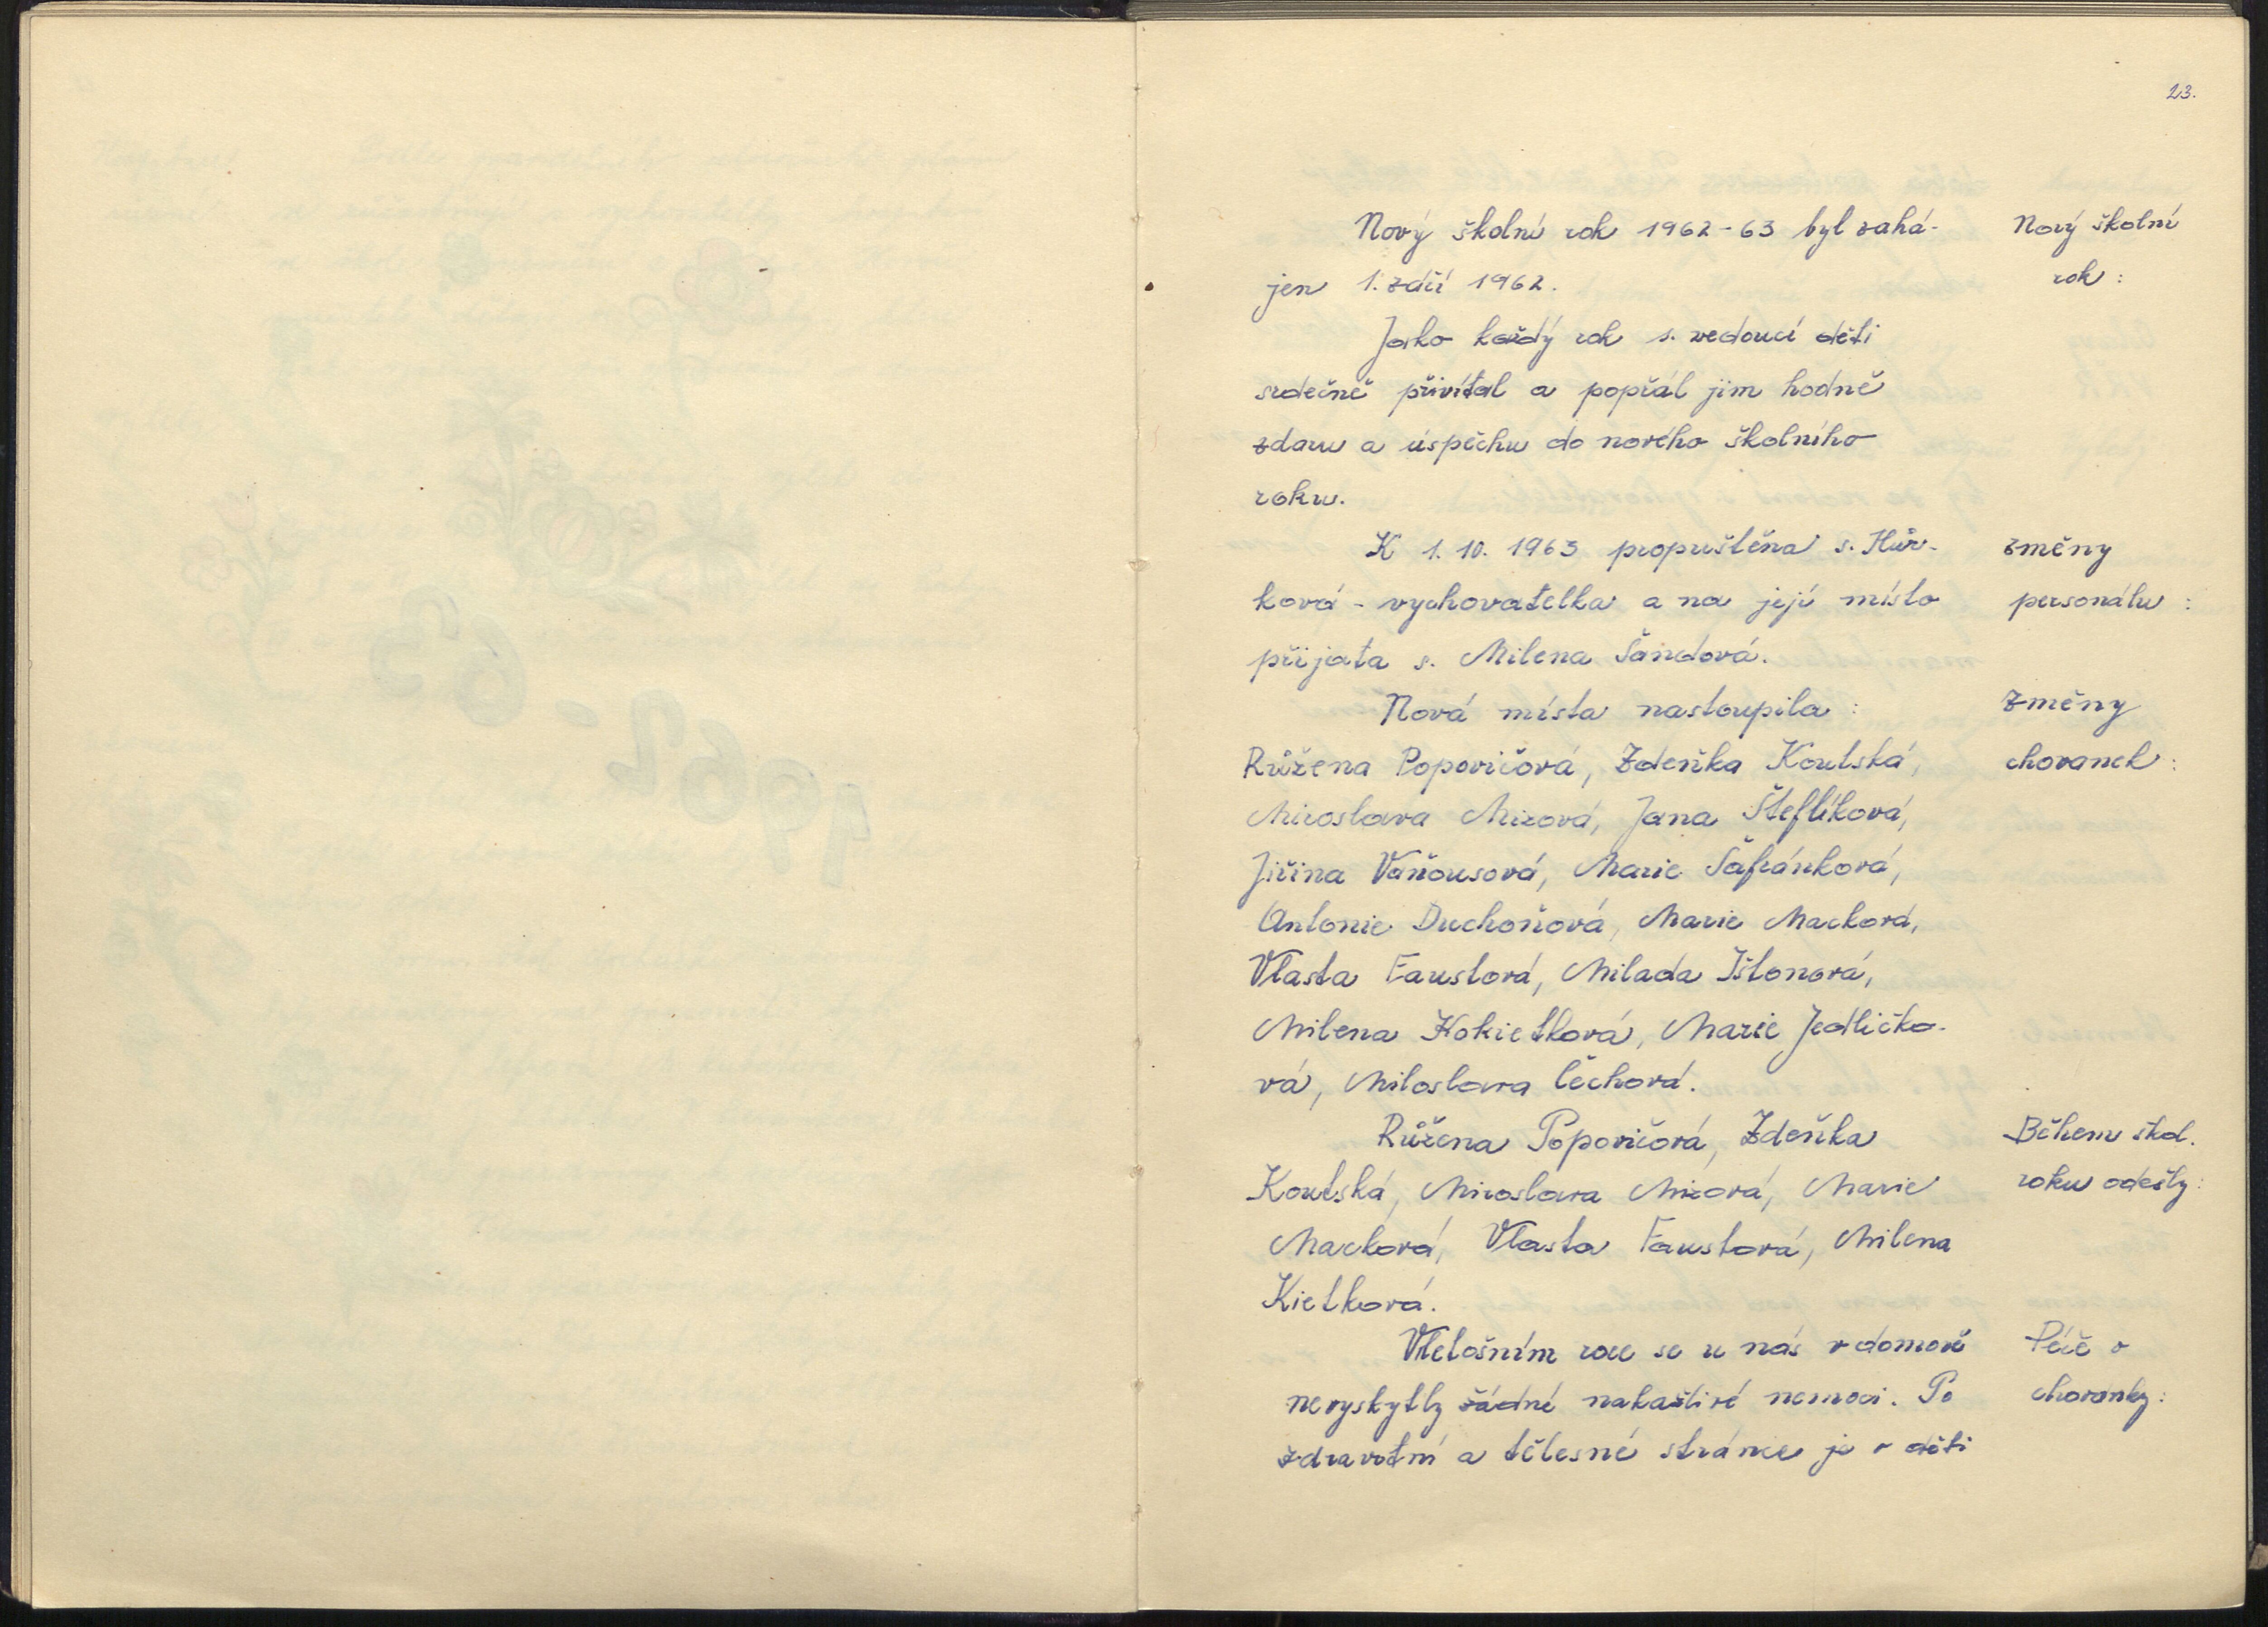 23.
Nový školní rok 1962-63 byl zahá-
jen 1. září 1962.
Nový školní
rok:
Jako každý rok s. vedoucí děti
srdečně přivítal a popřál jim hodně
zdaru a úspěchu do nového školního
roku.
K 1. 10. 1963 propuštěna s. Hůr-
ková - vychovatelka a na její místo
přijata s. Milena Šandová.
změny
personálu:
Nová místa nastoupila:
Růžena Popovičová, Zdeňka Koutská,
Miroslava Mizová, Jana Šteflíková,
Jiřina Vaňousová, Marie Šafránková,
Antonie Duchoňová, Marie Macková,
Vlasta Faustová, Milada Ištonová,
Milena Kokietková, Marie Jedličko-
vá, Miloslava Čechová.
Změny
chovanek:
Růžena Popovičová, Zdeňka
Koutská, Miroslava Mizová, Marie
Macková, Vlasta Faustová, Milena
Kietková.
Během škol.
roku odešly:
V letošním roce se u nás v domově
nevyskytly žádné nakažlivé nemoci. Po
zdravotní a tělesné stránce je o děti
Péče o
chovanky: